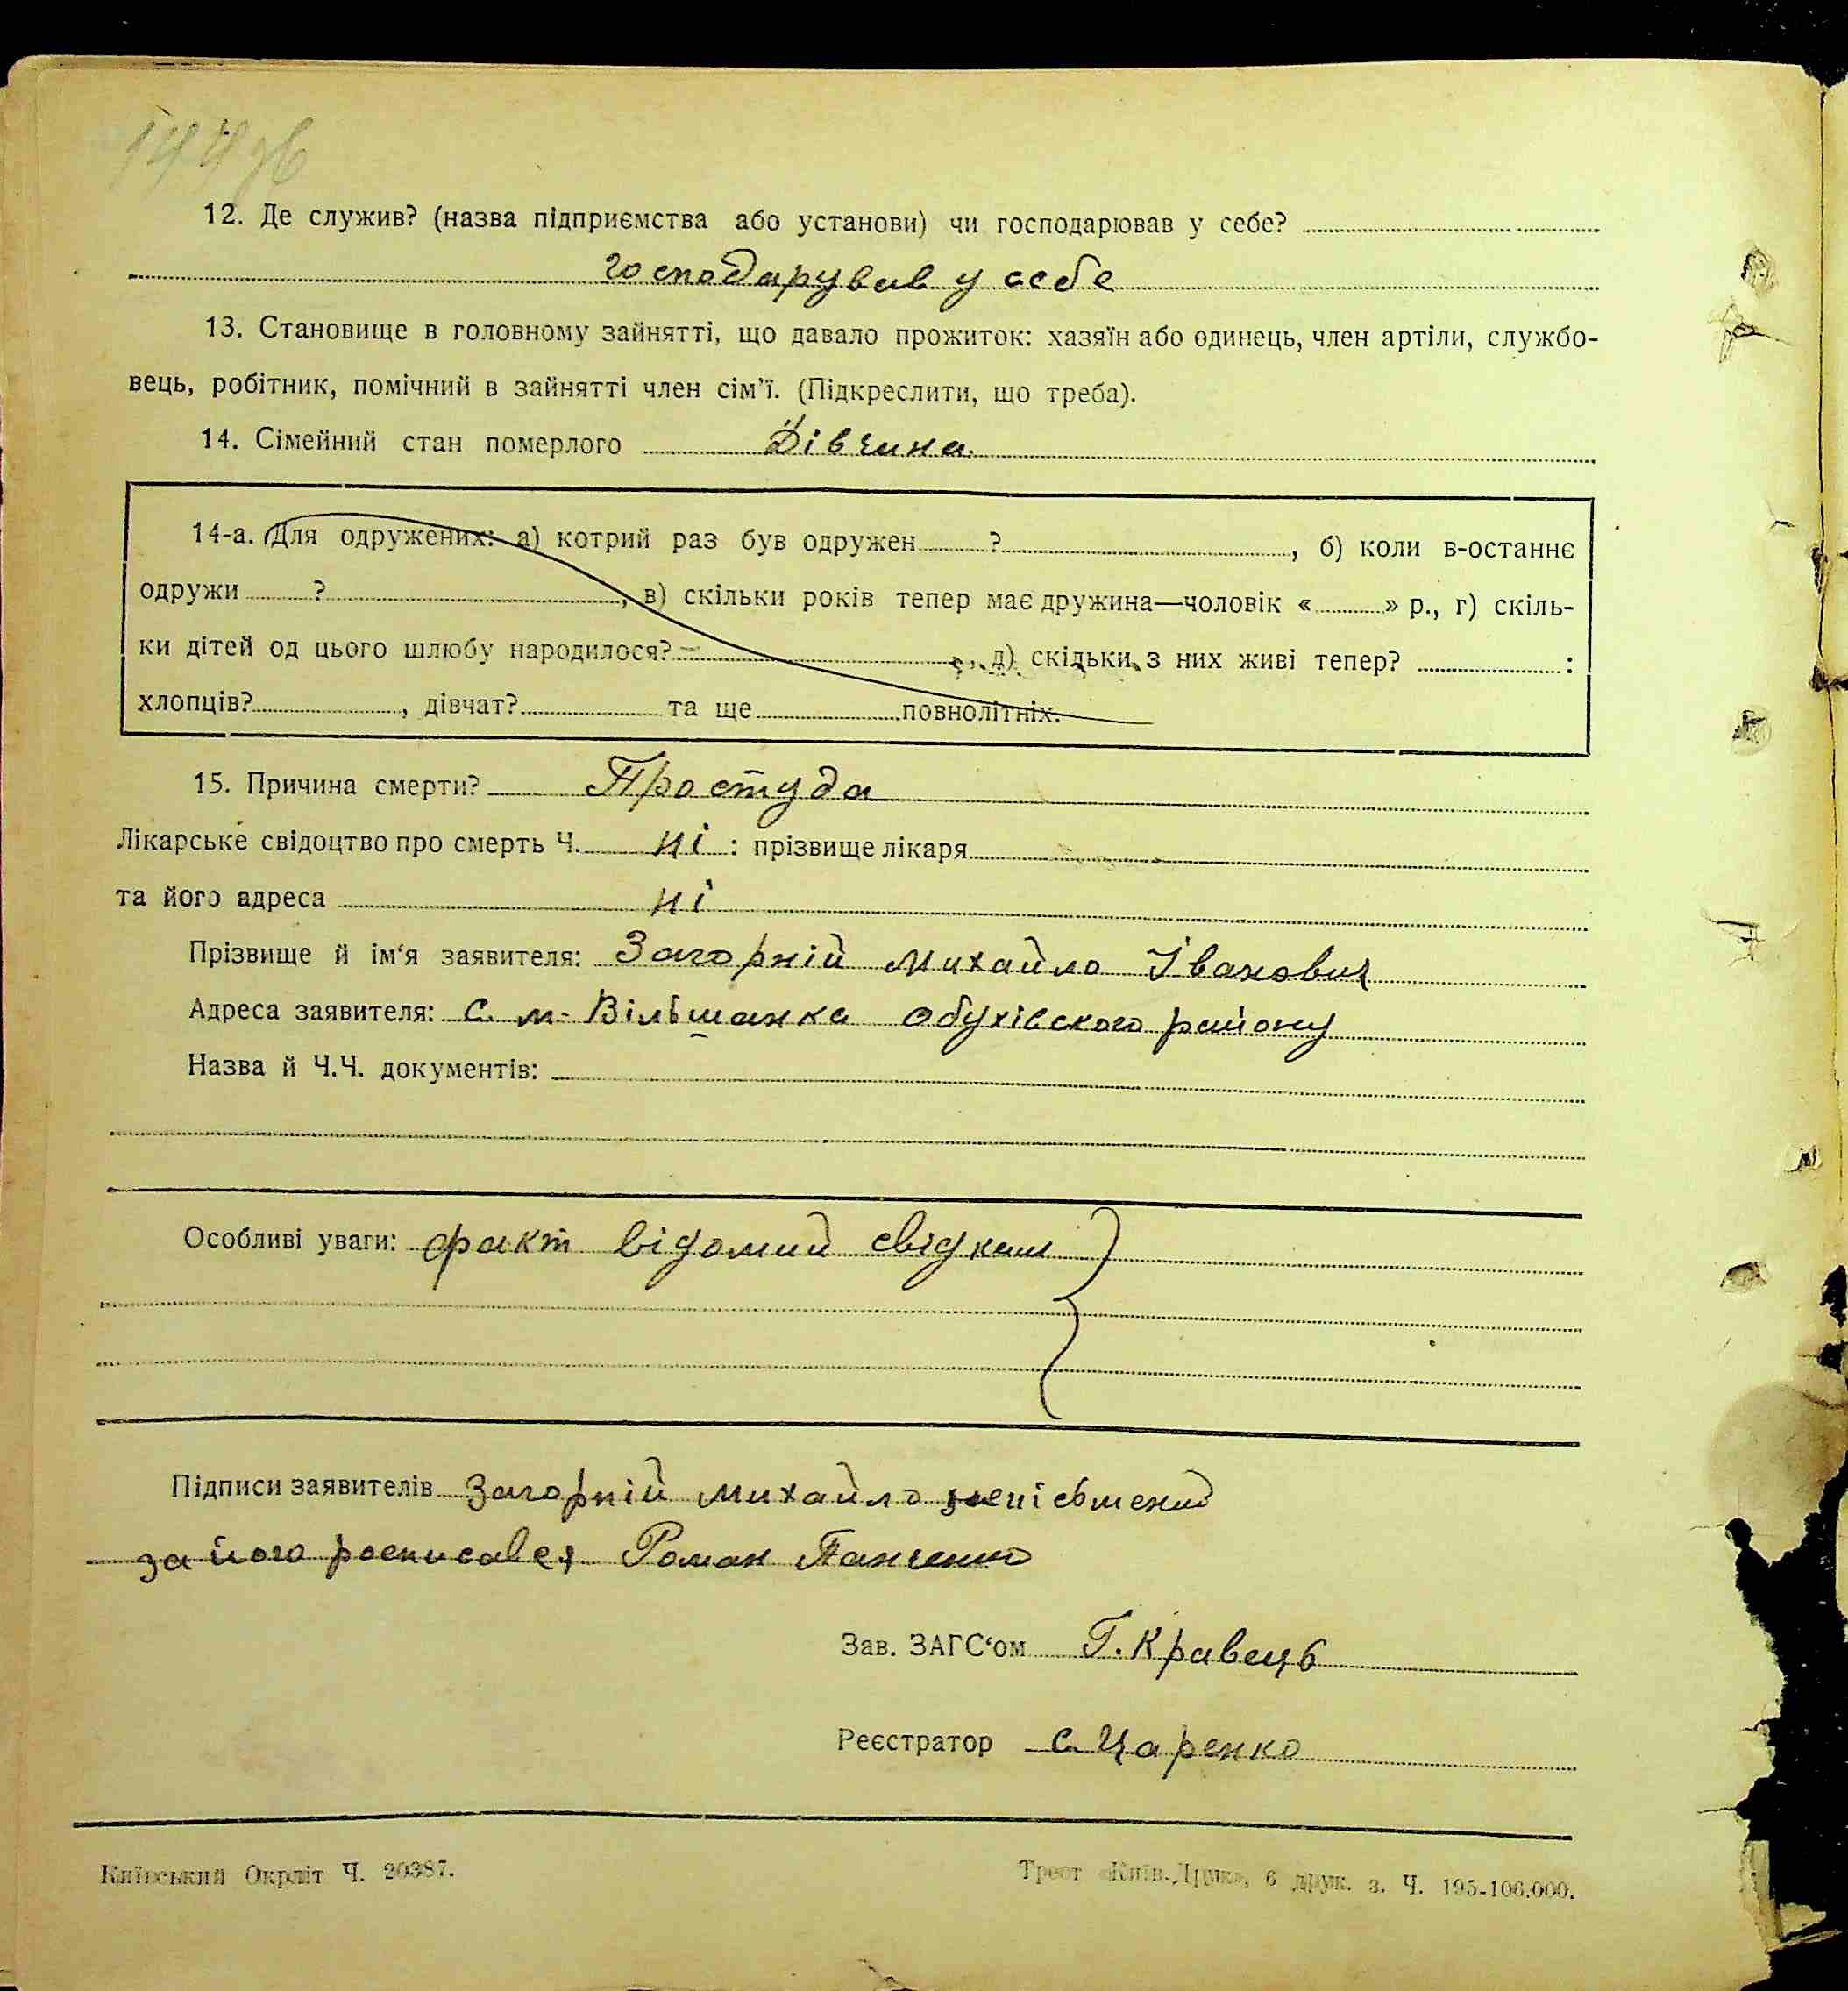 144 зв
12. Де служив? (назва підприємства або установи) чи господарював у себе?
господарував у себе
13. Становище в головному зайнятті, що давало прожиток: хазяїн або одинець, член артіли, службо-
вець, робітник, помічний в зайнятті член сім'ї. (Підкреслити, що треба).
14. Сімейний стан померлого Дівчина.
14-а. Для одружених: а) котрий раз був одружен ? , б) коли в-останнє
одружи ? , в) скільки років тепер має дружина—чоловік « » р., г) скіль-
ки дітей од цього шлюбу народилося? , д) скільки з них живі тепер? :
хлопців? , дівчат? та ще повнолітніх.
15. Причина смерти? Простуда
Лікарське свідоцтво про смерть Ч. ні : прізвище лікаря
та його адреса ні
Прізвище й ім'я заявителя: Загорній Михайло Іванович
Адреса заявителя: С. м-Вільшанка Обухівского району
Назва й Ч.Ч. документів:
Особливі уваги: факт відомий свідкам
Підписи заявителів Загорній Михайло
за його росписався Роман Панченко
Зав. ЗАГС'ом Г. Кравець
Реєстратор С. Царенко
Київський Окрліт Ч. 20387.
Трест «Київ-Друк», 6 друк. з. Ч. 195-106.000.